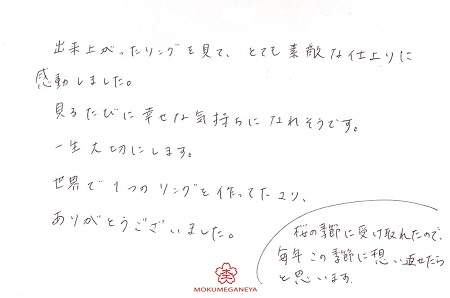 出来上がったリングを見て、とても素敵な仕上りに
感動しました。
見るたびに幸せな気持ちになれそうです。
一生大切にします。
世界で1つのリングを作って下さり、
ありがとうございました。
桜の季節に受け取れたので、
毎年この季節に想い返せたら
と思います。
MOKUMEGANEYA